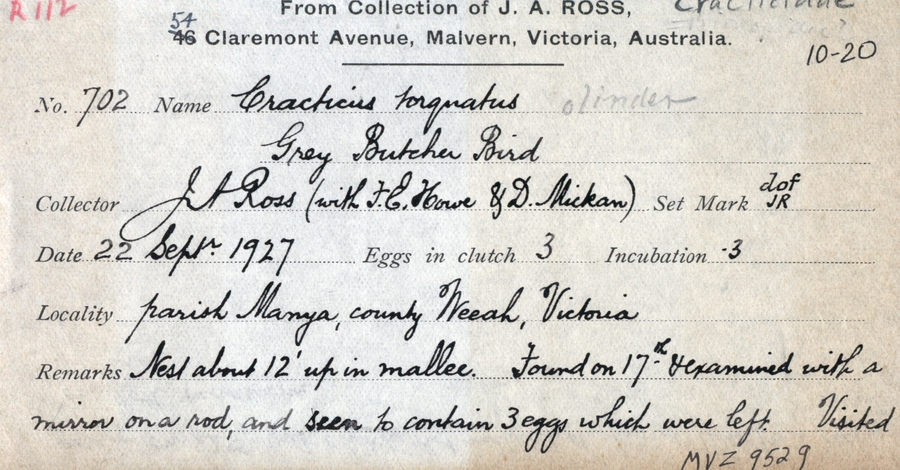 R 112
From Collection of J. A. ROSS,
54
46 Claremont Avenue, Malvern, Victoria, Australia.
10-20
No. 702 Name Cracticus torquatus
Grey Butcher Bird
Collector J A Ross (with F. E. Howe & D. Mickan) Set Mark dof JR
Date 22 Septr. 1927 Eggs in clutch 3 Incubation ·3
Locality parish Manya, county Weeah, Victoria
Remarks Nest about 12' up in mallee. Found on 17th & examined with a
mirror on a rod, and seen to contain 3 eggs which were left. Visited
MVZ 9529